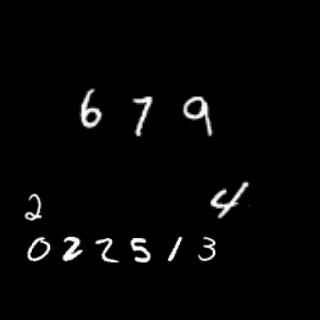 6 7 9
2 4
0 2 2 5 1 3